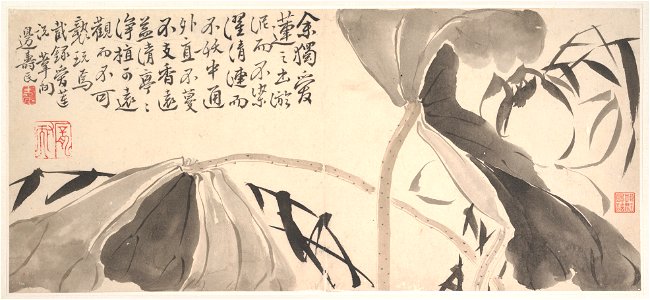 余獨愛
蓮之出淤
泥而不染
濯清漣而
不妖中通
外直不蔓
不支香遠
益清亭〻
淨植可遠
觀而不可
褻玩焉
截錄愛蓮
說葦間
邊壽民